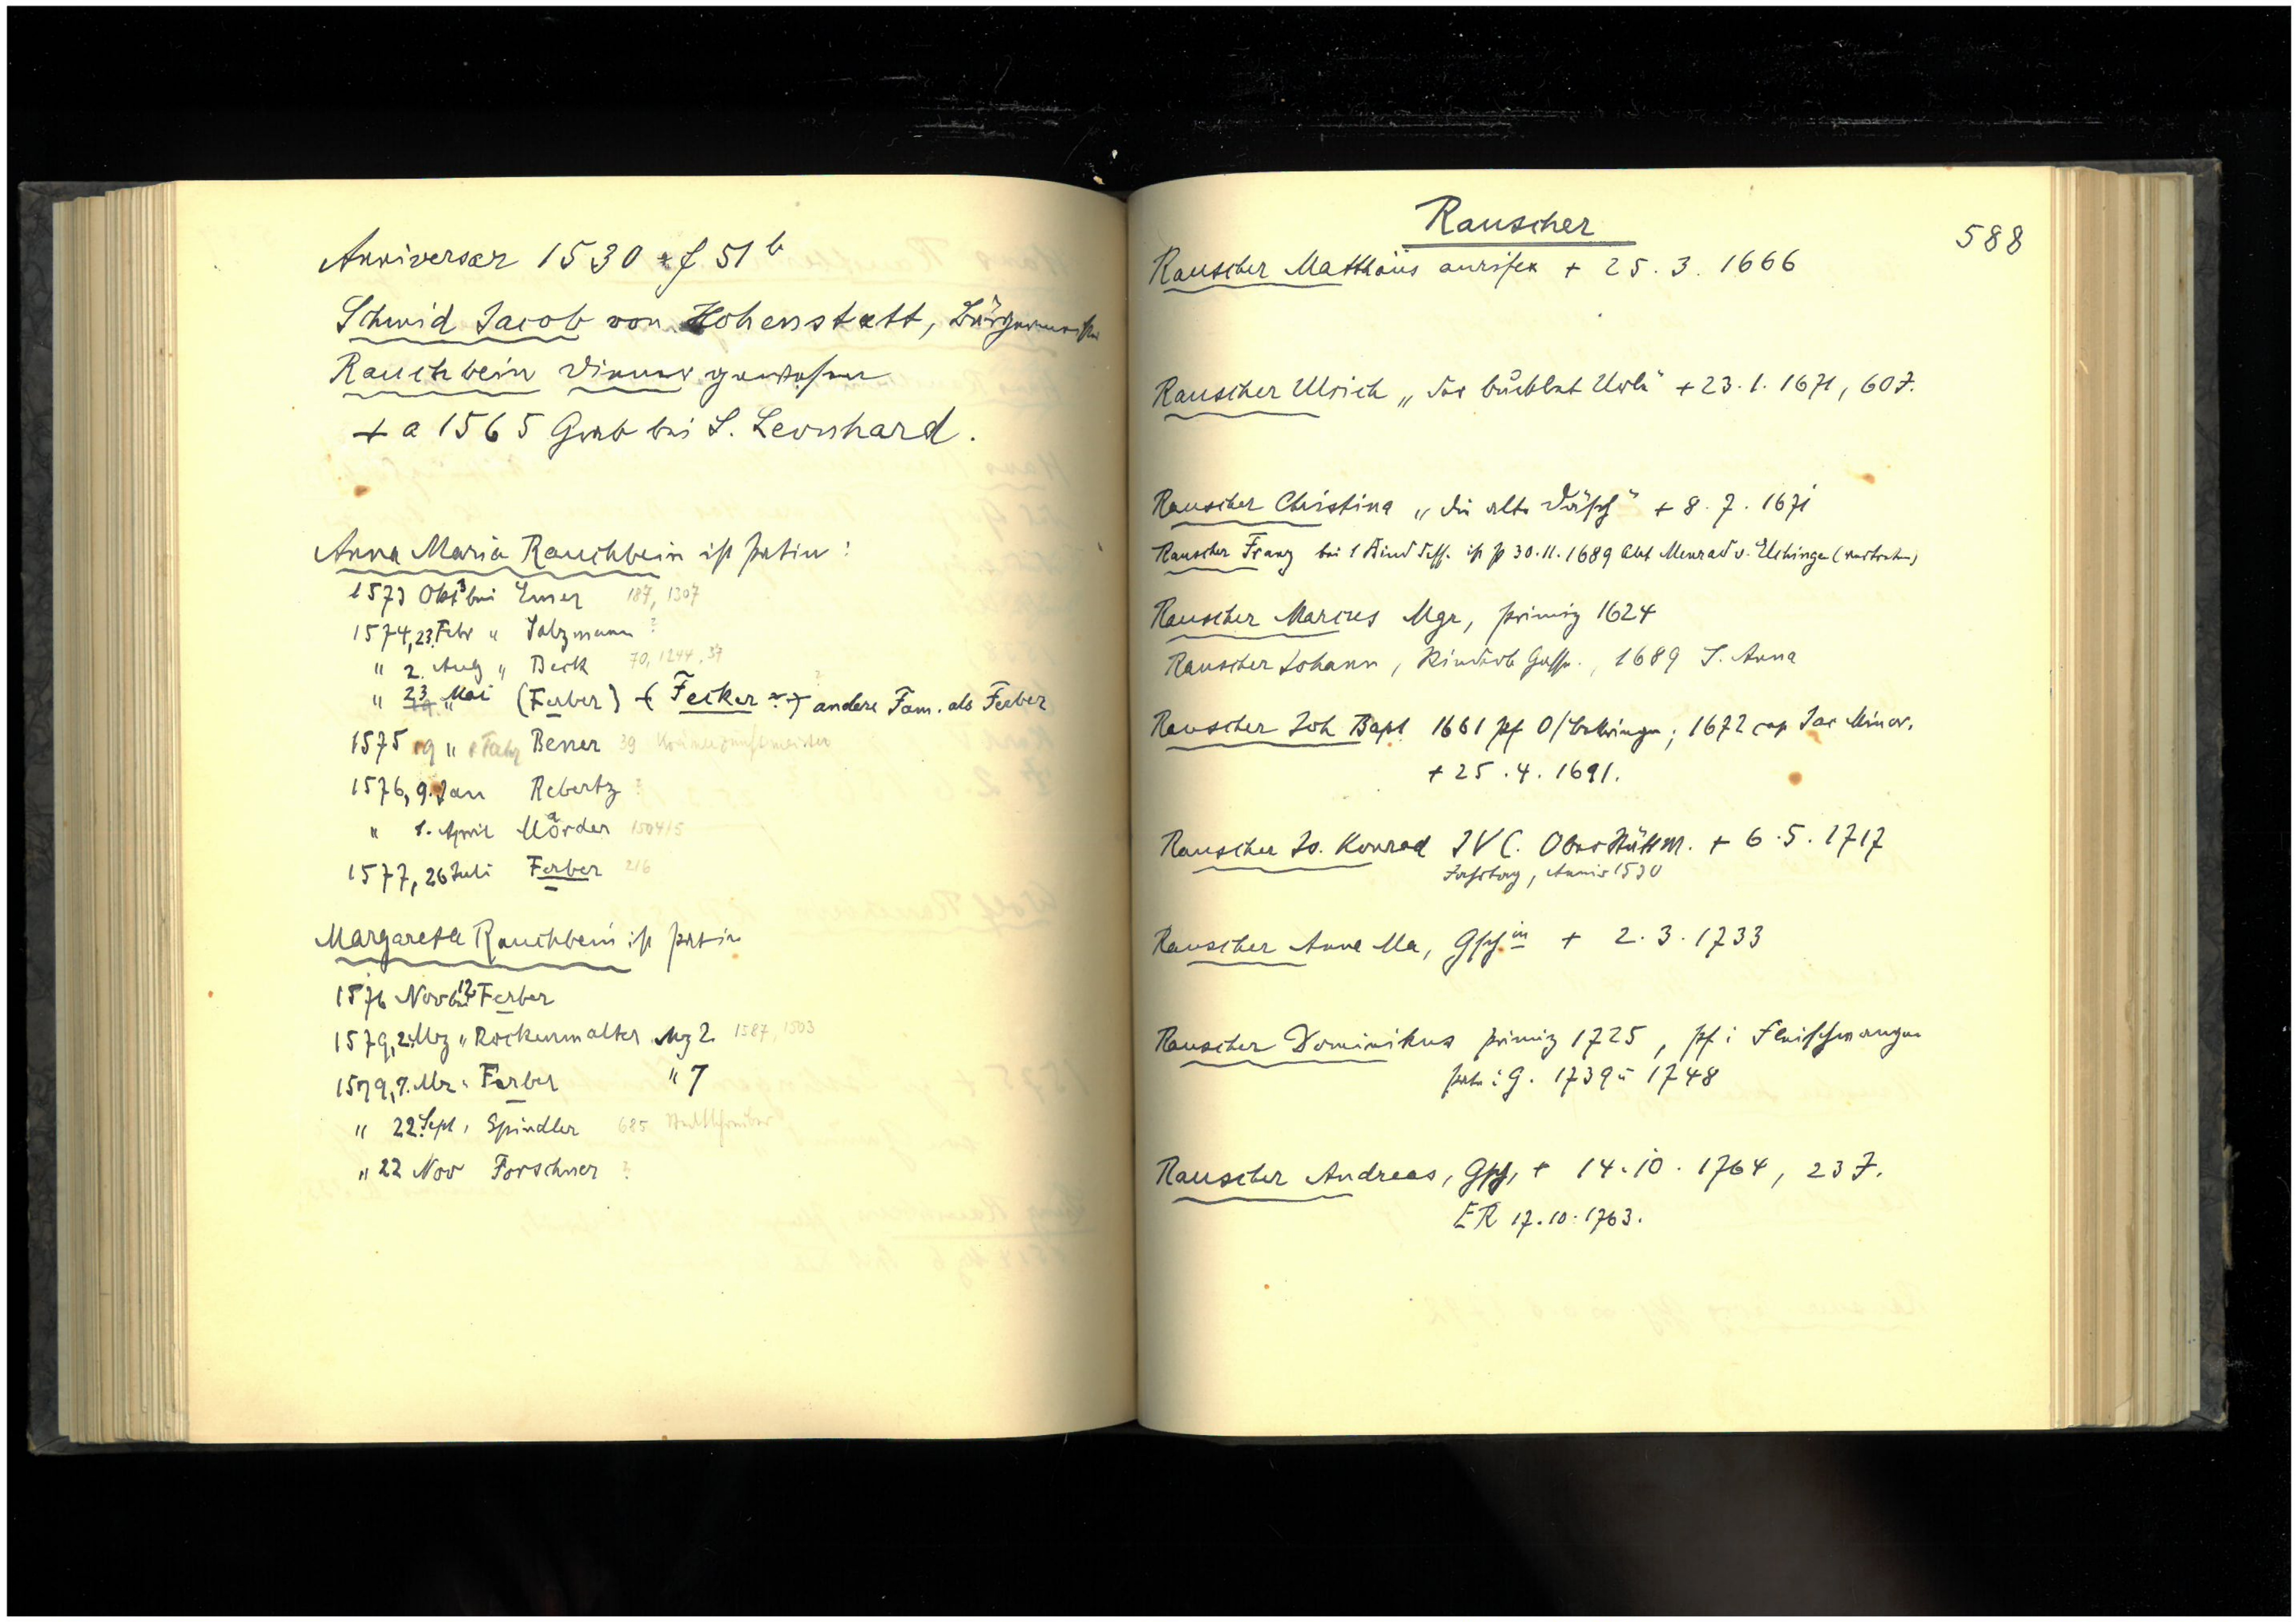 Anniversar 1530 f 51 b
Schmid Jacob von Hohenstatt, Bürgermeister
Rauchbein Diener gewesen
+ a 1565 Grab bei S. Leonhard.
Anna Maria Rauchbein ist Patin:
1573 Okt 3 bei Emer 187, 1307
1574, 23. Febr " Salzmann ?
" 2. Aug " Beck 70, 1244, 37
" 23. Mai (Ferber) (Fecker ?) andere Fam. als Ferber
1575 19 " Bener 39
1576, 9. Jan Rebertz ?
" 1. April Mörder 1504/5
1577, 26 Juli Ferber 216
Margareta Rauchbein ist Patin
1576 Nov 12 bei Ferber
1579, 2. Mrz " Rockenmalter Mz 2. 1587, 1503
1579, 7. Mrz " Ferber " 7
" 22. Sept, Spindler 685 Stadtschreiber
" 22 Nov Forschner ?
Rauscher
588
Rauscher Matthäus aurifex + 25. 3. 1666
Rauscher Ulrich „der Urle" + 23. 1. 1671, 60 J.
Rauscher Christina „die alte Däsch" + 8. 7. 1671
Rauscher Franz bei 1 Kind dess. ist p 30. 11. 1689 Abt Menrad v. Elchingen (vertreten)
Rauscher Marcus Mgr, primiz 1624
Rauscher Johann, Rinderb Gasse., 1689 S. Anna
Rauscher Joh Bapt 1661 pf O/böbingen; 1672 cap Jac Minor.
+ 25. 4. 1691.
Rauscher Jo. Konrad IVC. Oberstättm. + 6. 5. 1717
Jahrtag, Anniv 1530
Rauscher Anna Ma, Gschin + 2. 3. 1733
Rauscher Dominikus primiz 1725, pf i Fleischwangen
Pate i G. 1739 u 1748
Rauscher Andreas, Gsch, + 14. 10. 1764, 23 J.
ER 17. 10. 1763.